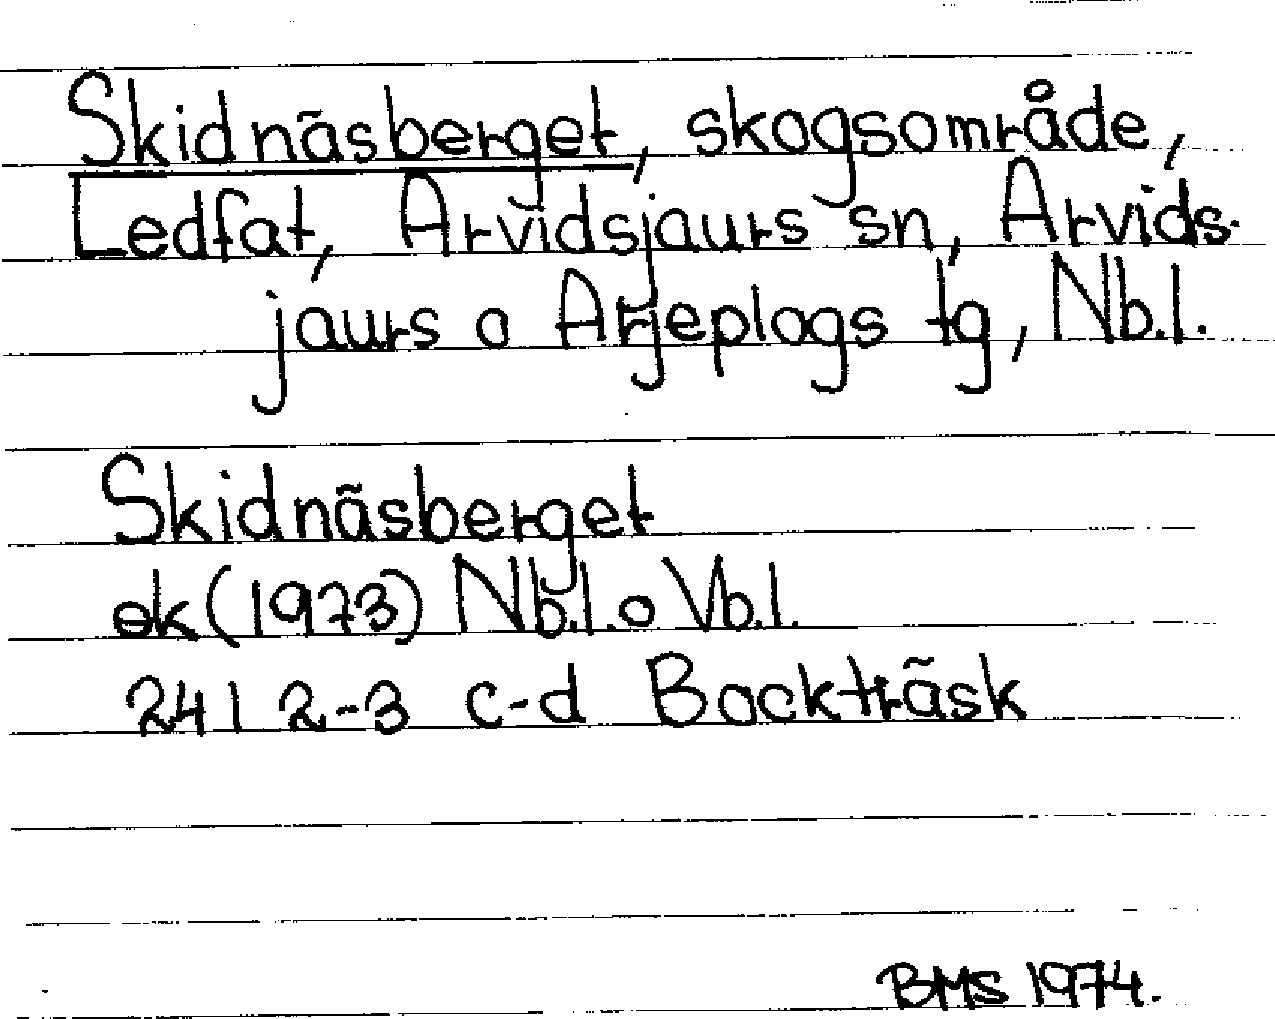 Skidnäsberget, skogsområde,
Ledfat, Arvidsjaurs sn, Arvids-
jaurs o Arjeplogs tg, Nb.l.
Skidnäsberget
ek (1973) Nb.l. o Vb.l.
241 2-3 c-d Backträsk
BMS 1974.